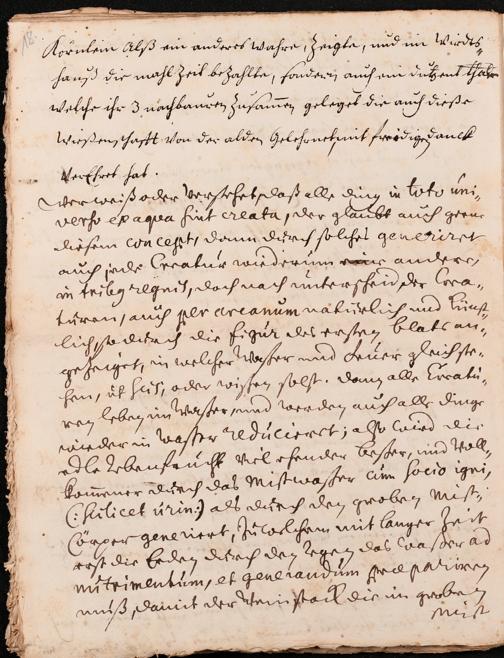 18.
Körnlein Alß ein anderes wahre, Zeigte, und im Wirdts-
hauß die mahl Zeit bezahlte, sondern auch ein dutzent thaler
welche ihr 3 nachbauren Zusammen geleget die auch dieße
Wissenschafft von der alden gelehrnet mit freidigen danck
Verehret hat.
Wer weiß oder Verstehet, daß alle ding in toto uni-
verso ex aqua sint creata, der glaubt auch gerne
diesem concept, dann durch solches generiret
auch jede Creatur wiederum andere,
in tribus regnis, doch nach unterscheid der Crea-
turen, auch per arcanum natürlich und künst-
lich, so durch die figur des ersten blats an-
gezeiget, in welcher Waßer und feuer gleich ste-
hen, oder wißen solst. dann alle Creatu-
ren leben im Waßer, und werden auch alle dinge
wieder in Waßer reducieret; also wird die
edle Rebenfrucht viel ehender beßer, und Voll-
kommener durch das Mistwaßer cum socio igni,
(: scilicet urin:) als durch den groben Mist-
Cörper generiret, Zu welchem mit langer Zeit
erst die Erden durch den regen das Waßer ad
nutrimentum, et generandum
muß, damit der Weinstock die im groben
Mist